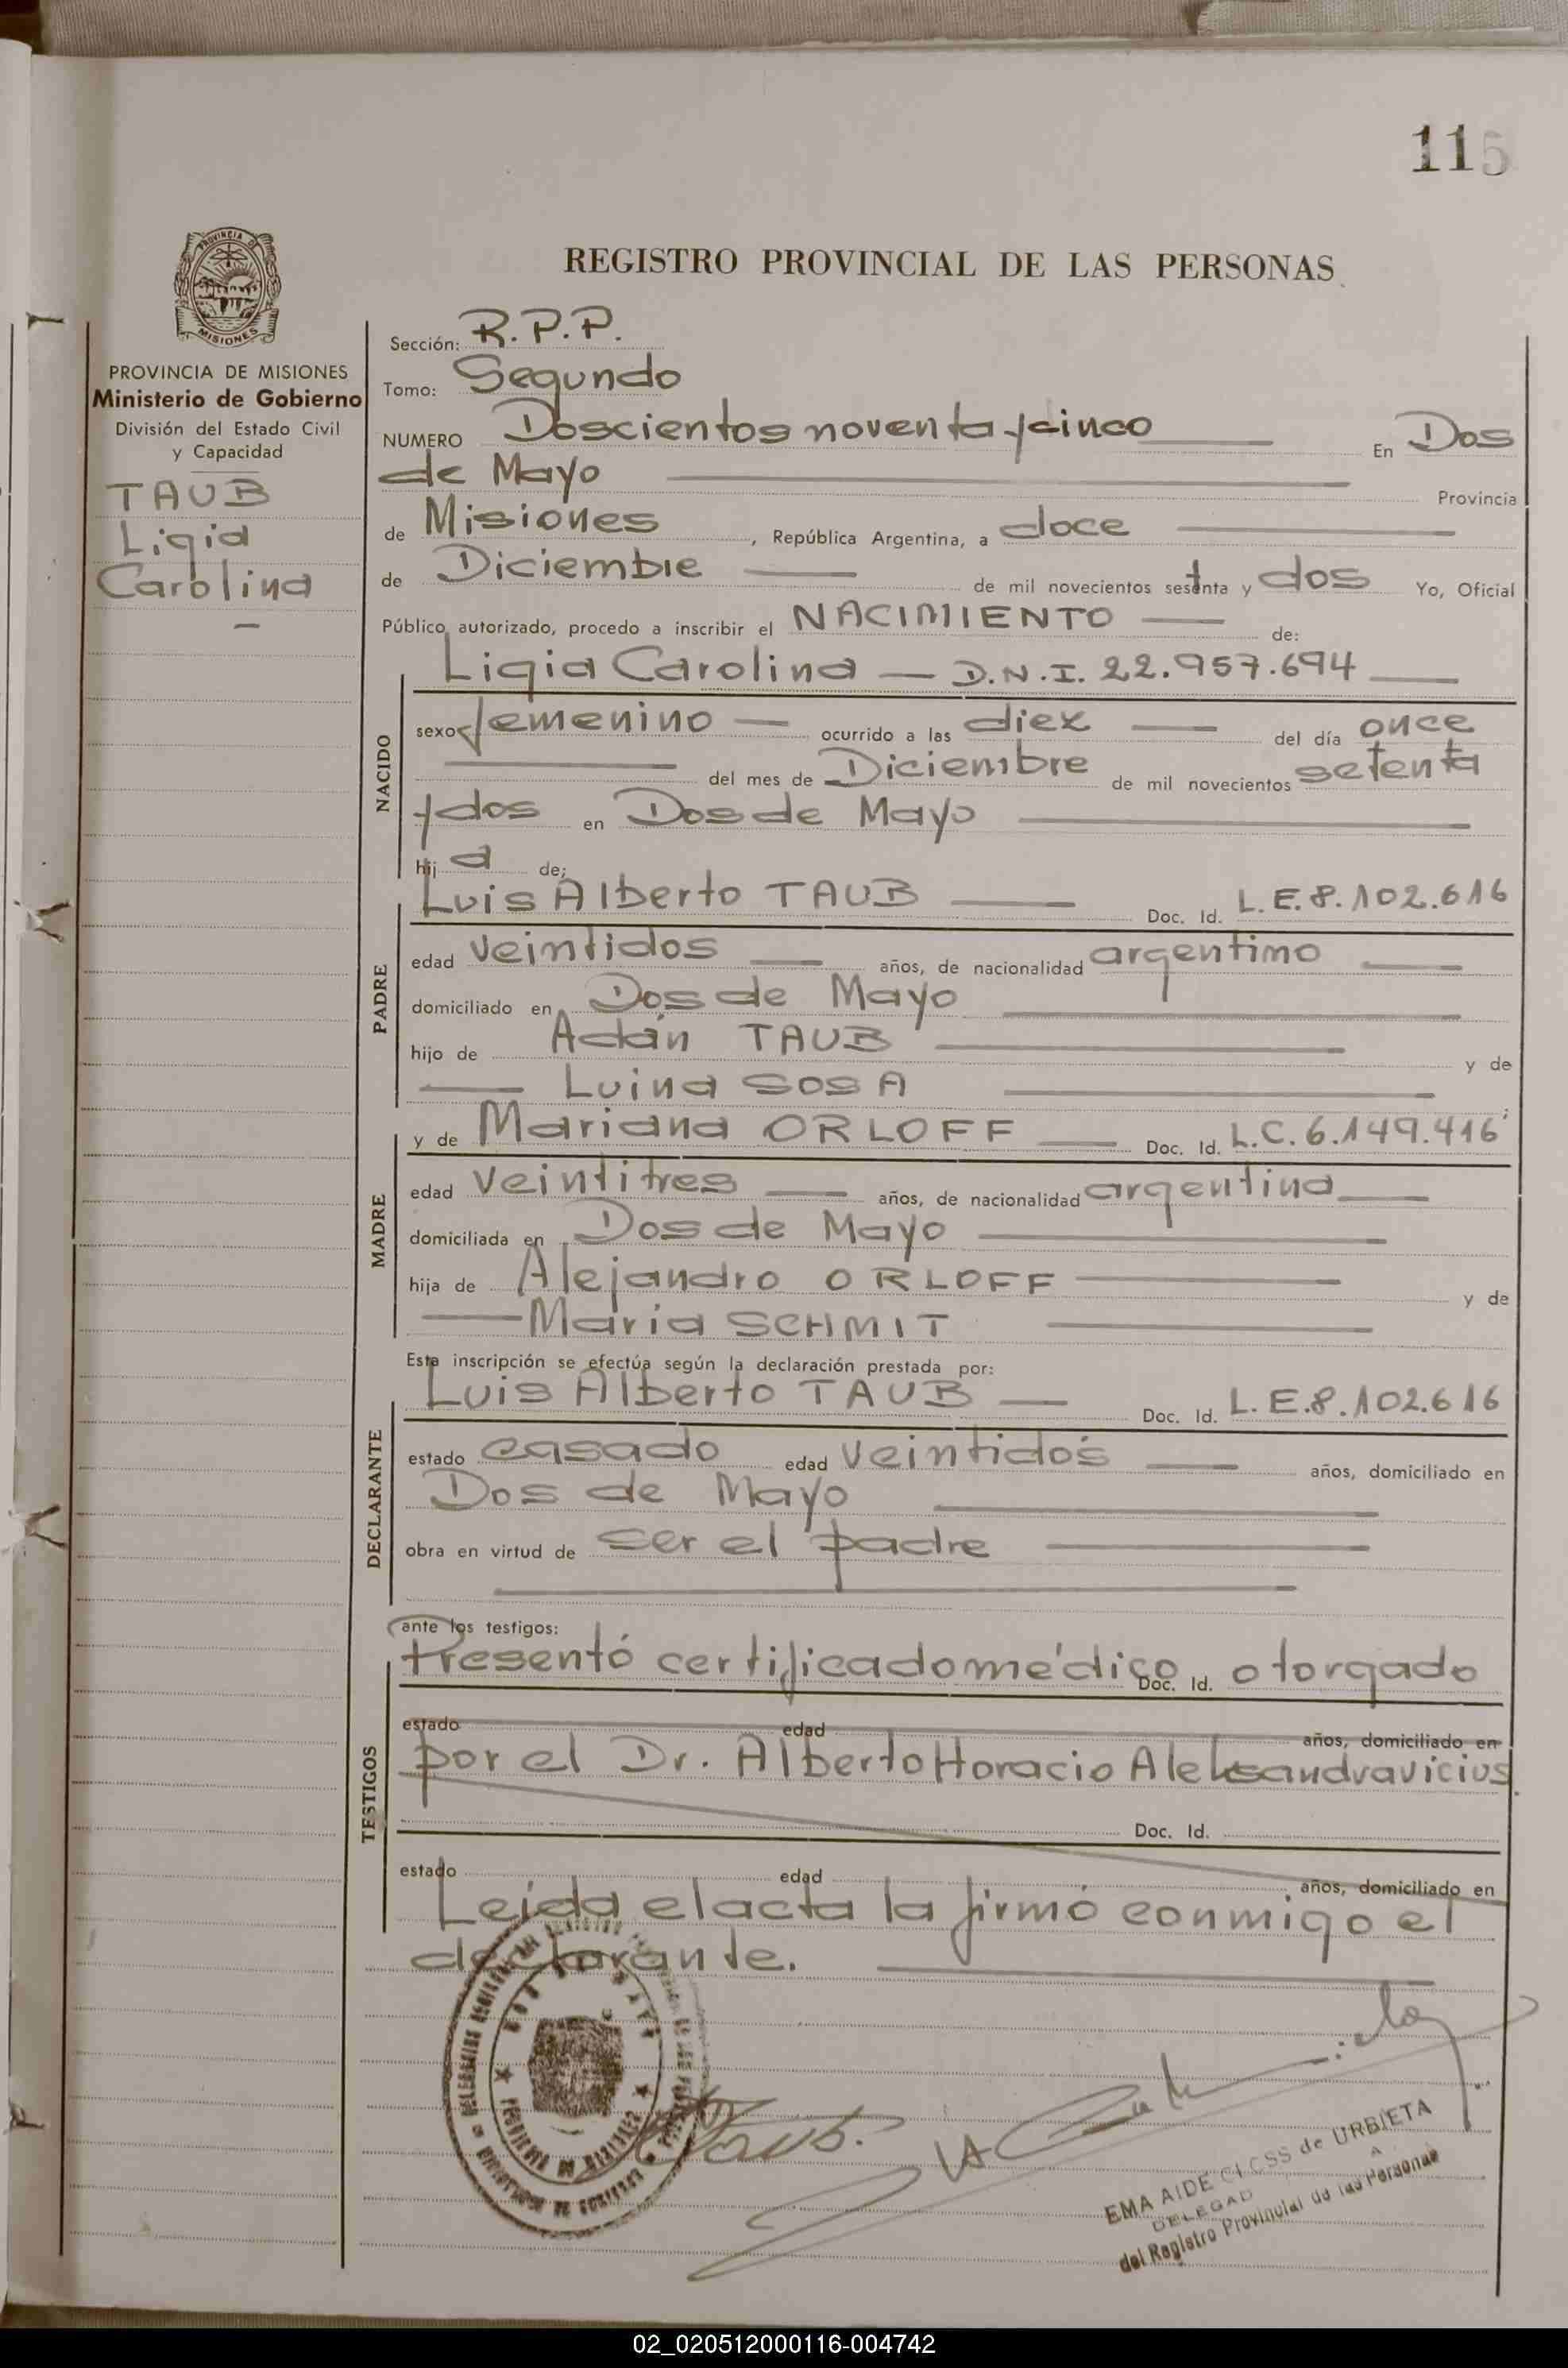 115
PROVINCIA DE
MISIONES
REGISTRO PROVINCIAL DE LAS PERSONAS
PROVINCIA DE MISIONES
Ministerio de Gobierno
División del Estado Civil
y Capacidad
TAUB
Ligia
Carolina
Sección: R.P.P.
Tomo: Segundo
NUMERO Doscientos noventa y cinco En Dos
de Mayo Provincia
de Misiones, República Argentina, a doce
de Diciembre de mil novecientos setenta y dos Yo, Oficial
Público autorizado, procedo a inscribir el NACIMIENTO de:
Ligia Carolina — D.N.I. 22.957.694
NACIDO
sexo femenino ocurrido a las diez del día once
del mes de Diciembre de mil novecientos setenta
y dos en Dos de Mayo
hij a de;
PADRE
Luis Alberto TAUB Doc. Id. L.E.8.102.616
edad veintidos años, de nacionalidad argentino
domiciliado en Dos de Mayo
hijo de Adán TAUB y de
Luina SOSA
MADRE
y de Mariana ORLOFF Doc. Id. L.C.6.149.416
edad veintitres años, de nacionalidad argentina
domiciliada en Dos de Mayo
hija de Alejandro ORLOFF y de
Maria SCHMIT
Esta inscripción se efectúa según la declaración prestada por:
DECLARANTE
Luis Alberto TAUB Doc. Id. L.E.8.102.616
estado casado edad veintidos años, domiciliado en
Dos de Mayo
obra en virtud de ser el padre
ante los testigos:
TESTIGOS
Presentó certificado médico Doc. Id. otorgado
estado edad años, domiciliado en
por el Dr. Alberto Horacio Aleksandravicius
Doc. Id.
estado edad años, domiciliado en
Leida el acta la firmó conmigo el
declarante.
Taub.
EMA AIDE CLOSS de URBIETA
DELEGADA
del Registro Provincial de las Personas
02_020512000116-004742